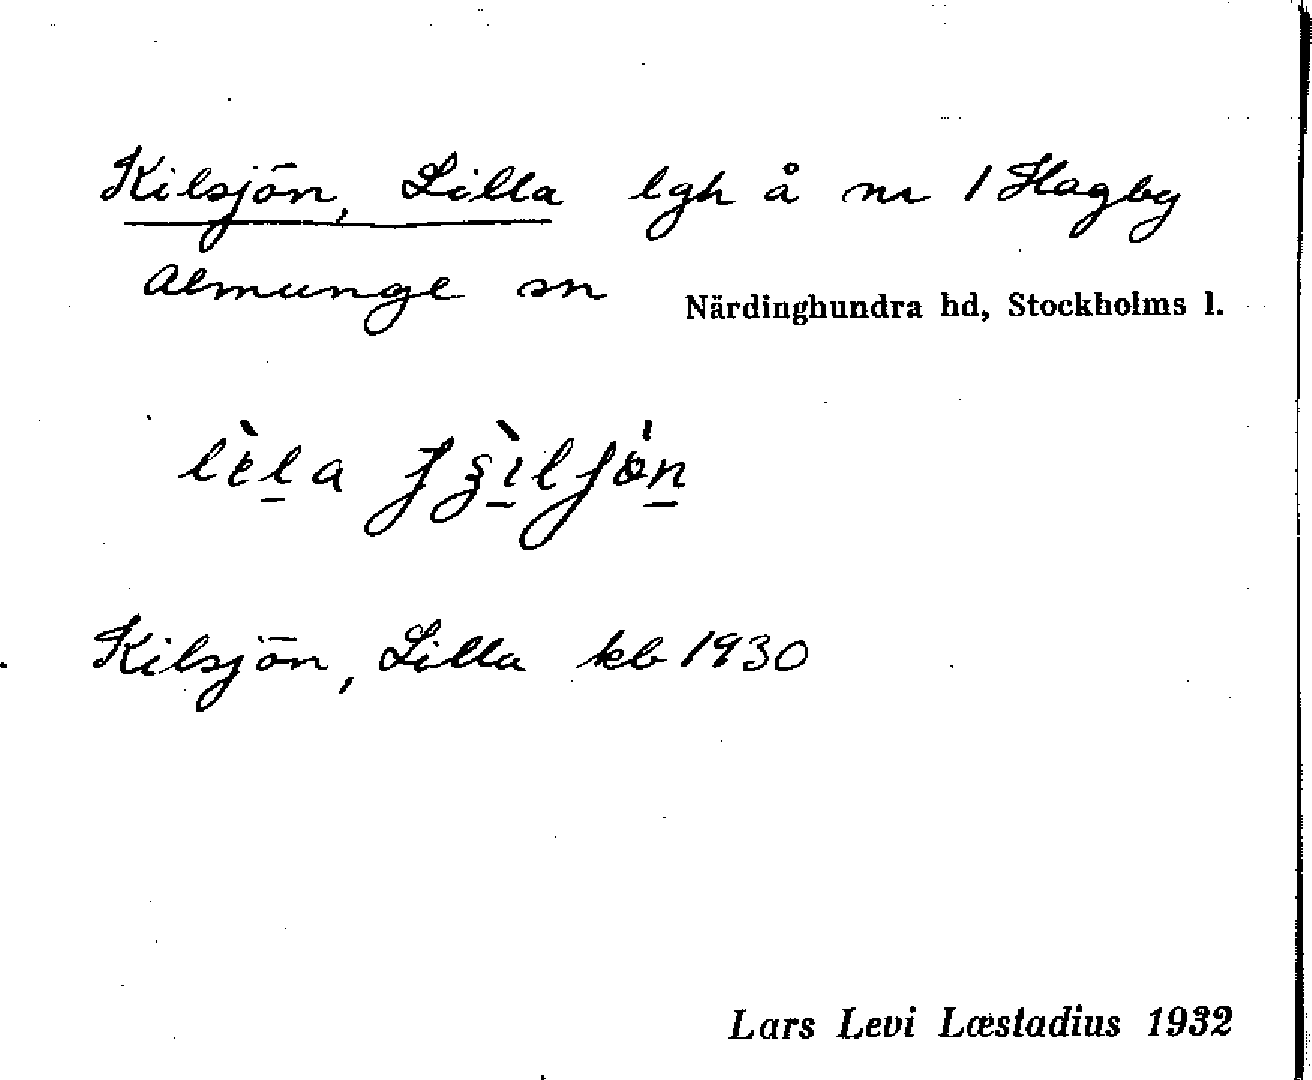 Kilsjön, Lilla lgh å nr 1 Hagby
Almunge sn Närdinghundra hd, Stockholms l.
Kilsjön, Lilla kb 1930
Lars Levi Læstadius 1932